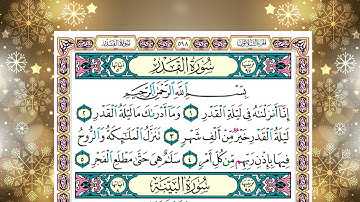 الجزء الثلاثون ٥٩٨ سورة القدر
سورة القدر
بسم الله الرحمن الرحيم
إنا أنزلنه في ليلة القدر ١ وما أدرىك ما ليلة القدر ٢
ليلة القدر خير من ألف شهر ٣ تنزل الملىكة والروح
فيها بإذن ربهم من كل أمر ٤ سلم هي حتى مطلع الفجر ٥
سورة البينة